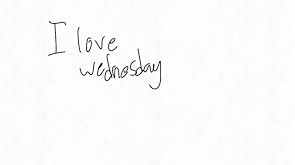 I love
wednesday